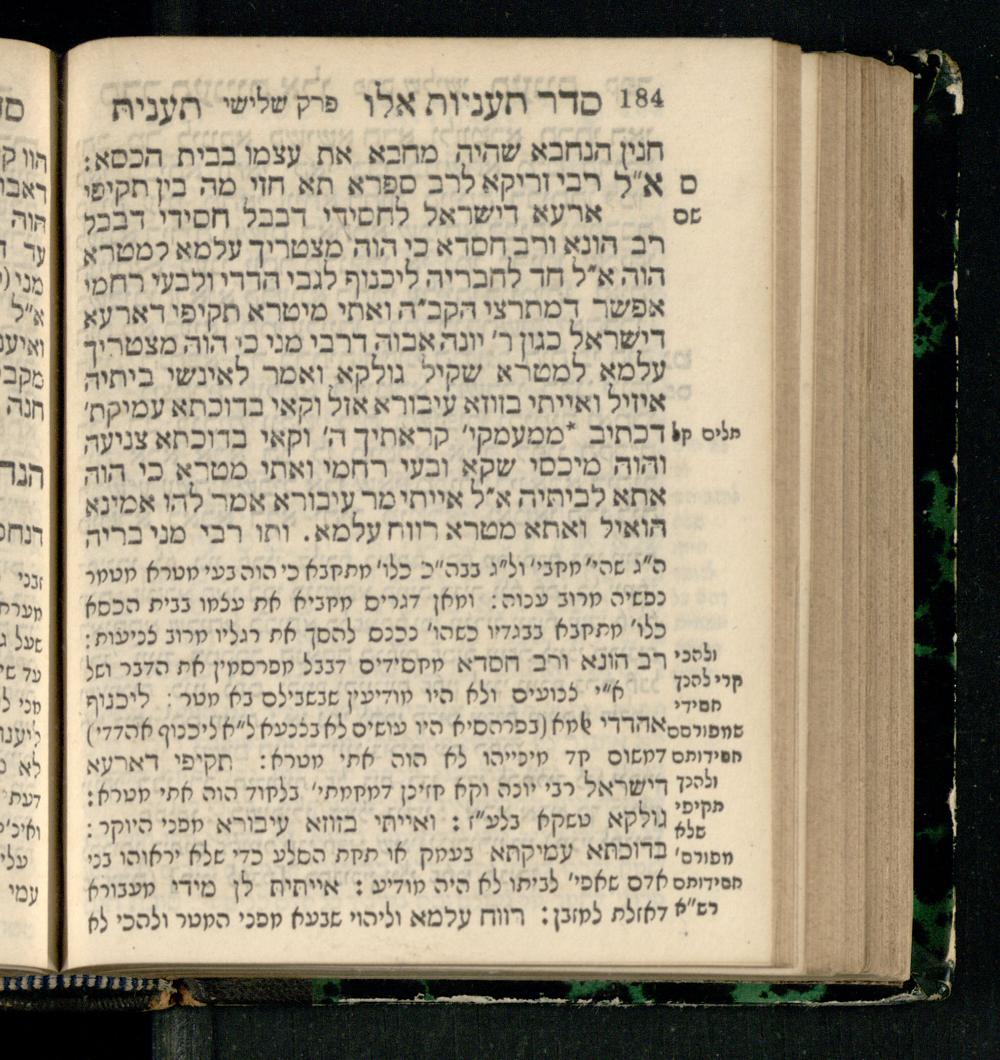 184 סדר תעניות אלו פרק שלישי תענית
חנין הנחבא שהיה מחבא את עצמו בבית הכסא:
ס א״ל רבי זריקא לרב ספרא תא חזי מה בין תקיפי
שם ארעא דישראל לחסידי דבבל חסידי דבבל
רב הונא ורב חסדא כי הוה מצטריך עלמא למטרא
הוה א״ל חד לחבריה ליכנוף לגבי הדדי ולבעי רחמי
אפשר דמתרצי הקב״ה ואתי מיטרא תקיפי דארעא
דישראל כגון ר׳ יונה אבוה דרבי מני כי הוה מצטריך
עלמא למטרא שקיל גולקא ואמר לאינשי ביתיה
איזיל ואייתי בזוזא עיבורא אזל וקאי בדוכתא עמיקת׳
תלים קל דכתיב *ממעמקי׳ קראתיך ה׳ וקאי בדוכתא צניעה
והוה מיכסי שקא ובעי רחמי ואתי מטרא כי הוה
אתא לביתיה א״ל אייתי מר עיבורא אמר להו אמינא
הואיל ואתא מטרא רווח עלמא. ותו רבי מני בריה
ה״ג שהי׳ מחבי׳ ול״ג בבה״כ כלו׳ מתחבא כי הוה בעי מטרא מטמר
נפשיה מרוב ענוה: ומאן דגרים מחביא את עצמו בבית הכסא
כלו׳ מתחבא בבגדיו כשהו׳ נכנס להסך את רגליו מרוב צניעות:
ולהכי רב הונא ורב חסדא מחסידים דבבל מפרסמין את הדבר ושל
קרי להנך א״י צנועים ולא היו מודיעין שבשבילם בא מטר: ליכנוף
חסידי
שמפורסם אהדדי שמא (בפרהסיא היו עושים לא בצנעא ל״א ליכנוף אהדדי)
חסידותם דמשום חד מינייהו לא הוה אתי מטרא: תקיפי דארעא
ולהנך דישראל רבי יונה וקא חזינן דמקמתי׳ בלחוד הוה אתי מטרא:
תקיפי
שלא גולקא טסקא בלע״ז: ואייתי בזוזא עיבורא מפני היוקר:
מפורס׳ בדוכתא עמיקתא בעמק או תחת הסלע כדי שלא יראוהו בני
חסידותם אדם שאפי׳ לביתו לא היה מודיע: אייתית לן מידי מעבורא
רש״א דאזלת למזבן: רווח עלמא וליהוי שבעא מפני המטר ולהכי לא